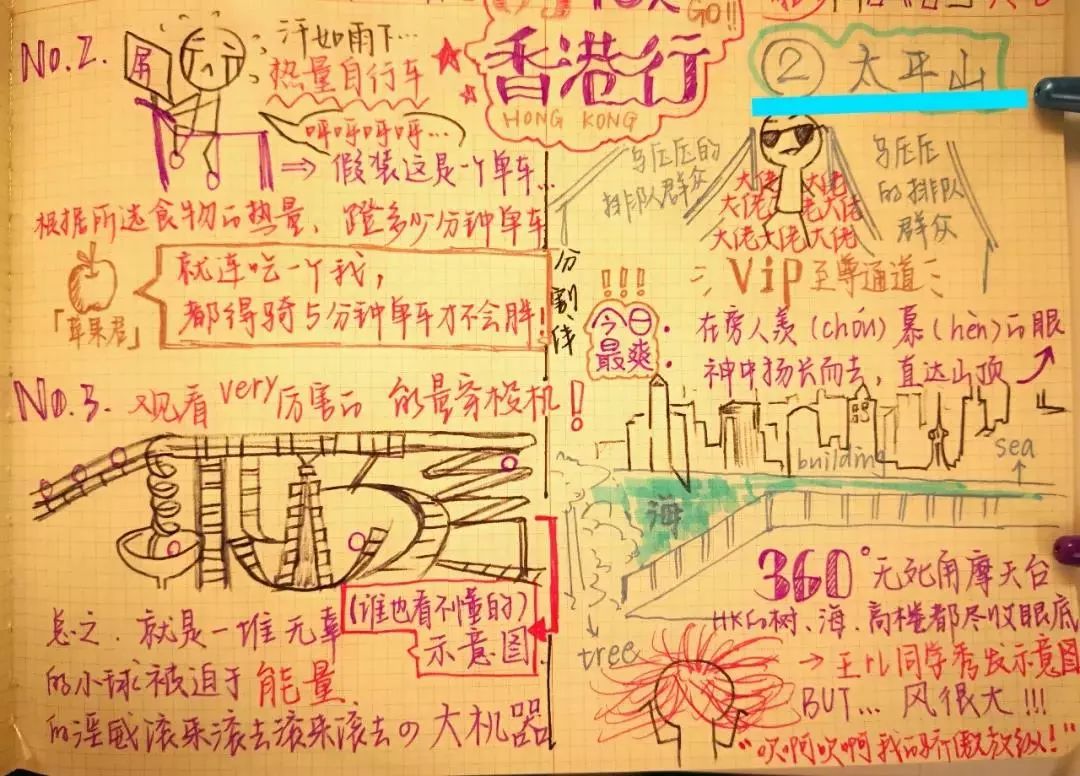 GO!!
香港行
HONG KONG
No.2.
屏
汗如雨下…
热量自行车
呼呼呼呼…
⇒ 假装这是一个单车…
根据所选食物的热量、蹬多少分钟单车
「苹果君」
就连吃一个我，
都得骑5分钟单车才不会胖!
No.3. 观看very厉害的 能量穿梭机!
(谁也看不懂的)
示意图
总之、就是一堆无辜
的小球被迫于能量
的淫威滚来滚去滚来滚去の大机器
分割线
② 太平山
乌压压的
排队群众
大佬 大佬
大佬 老大佬
大佬大佬大佬
乌压压
的排队
群众
Vip至尊通道
!!!
今日
最爽
：在旁人羡(chóu)慕(hèn)的眼
神中扬长而去，直达山顶
building
sea
海
tree
360°无死角摩天台
HK的树、海、高楼都尽收眼底
→ 王儿同学秀发示意图
BUT… 风很大!!!
"吹啊吹啊我的骄傲放纵!"